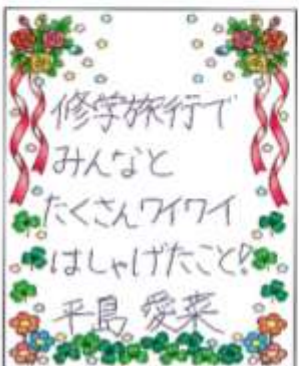 修学旅行で
みんなと
たくさんワイワイ
はしゃげたこと!
平島 愛菜